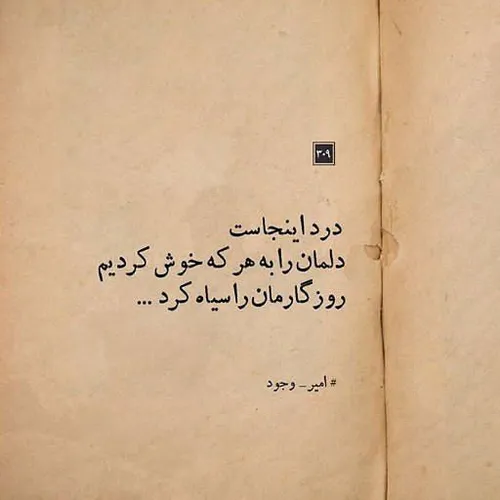 ۳۰۹
درد اینجاست
دلمان را به هر که خوش کردیم
روزگارمان را سیاه کرد ...
# امیر_وجود